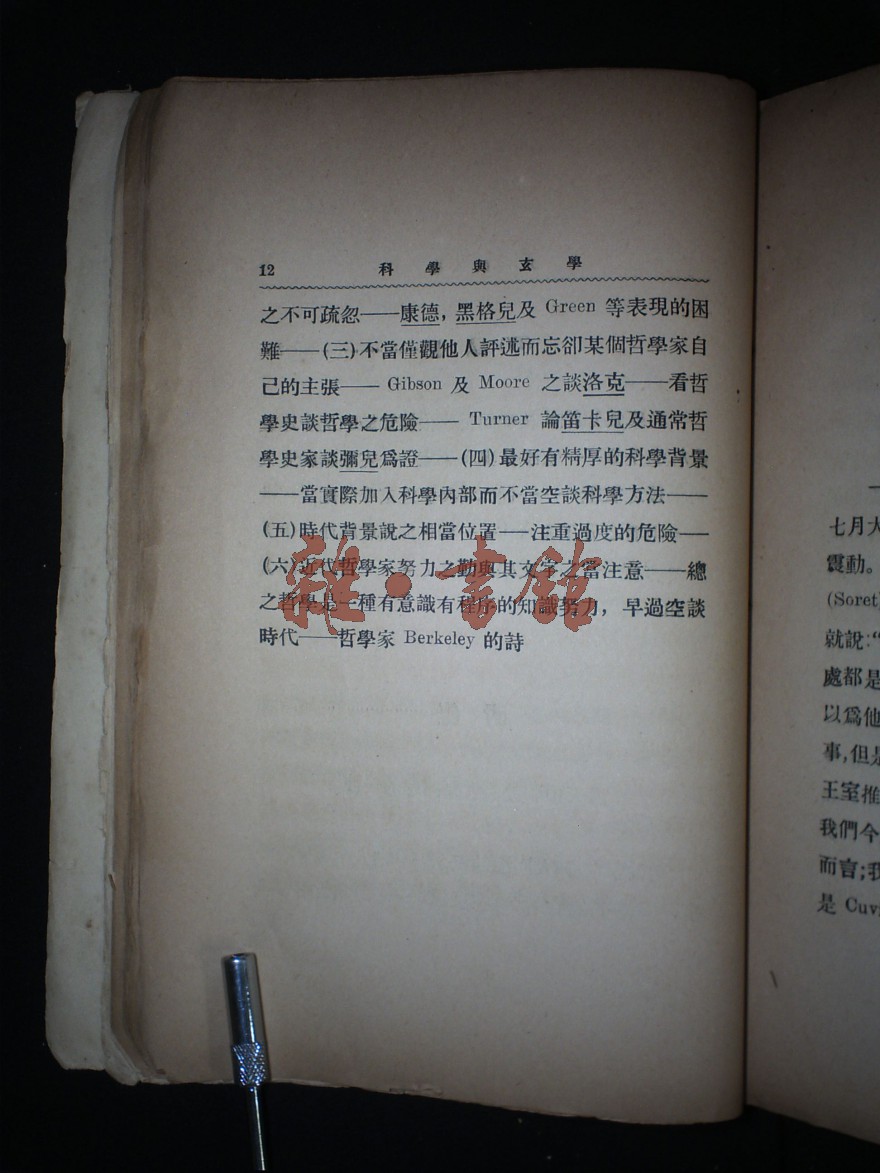 12 科學與玄學
之不可疏忽——康德，黑格兒及 Green 等表現的困
難——(三)不當僅觀他人評述而忘卻某個哲學家自
己的主張—— Gibson 及 Moore 之談洛克——看哲
學史談哲學之危險—— Turner 論笛卡兒及通常哲
學史家談彌兒爲證——(四)最好有精厚的科學背景
——當實際加入科學內部而不當空談科學方法——
(五)時代背景說之相當位置——注重過度的危險——
(六)近代哲學家努力之勤與其文字之當注意——總
之哲學是一種有意識有程序的知識努力，早過空談
時代——哲學家 Berkeley 的詩
雜·書館
七月
震動。
(Soret
就說：“
處都是
以爲他
事，但是
王室推
我們今
而言；我
是 Cuv